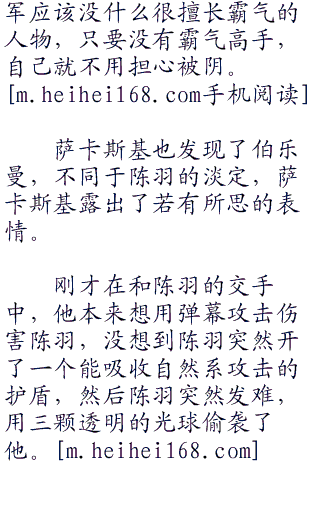 军应该没什么很擅长霸气的
人物，只要没有霸气高手，
自己就不用担心被阴。
[m.heihei168.com手机阅读]
萨卡斯基也发现了伯乐
曼，不同于陈羽的淡定，萨
卡斯基露出了若有所思的表
情。
刚才在和陈羽的交手
中，他本来想用弹幕攻击伤
害陈羽，没想到陈羽突然开
了一个能吸收自然系攻击的
护盾，然后陈羽突然发难，
用三颗透明的光球偷袭了
他。[m.heihei168.com]